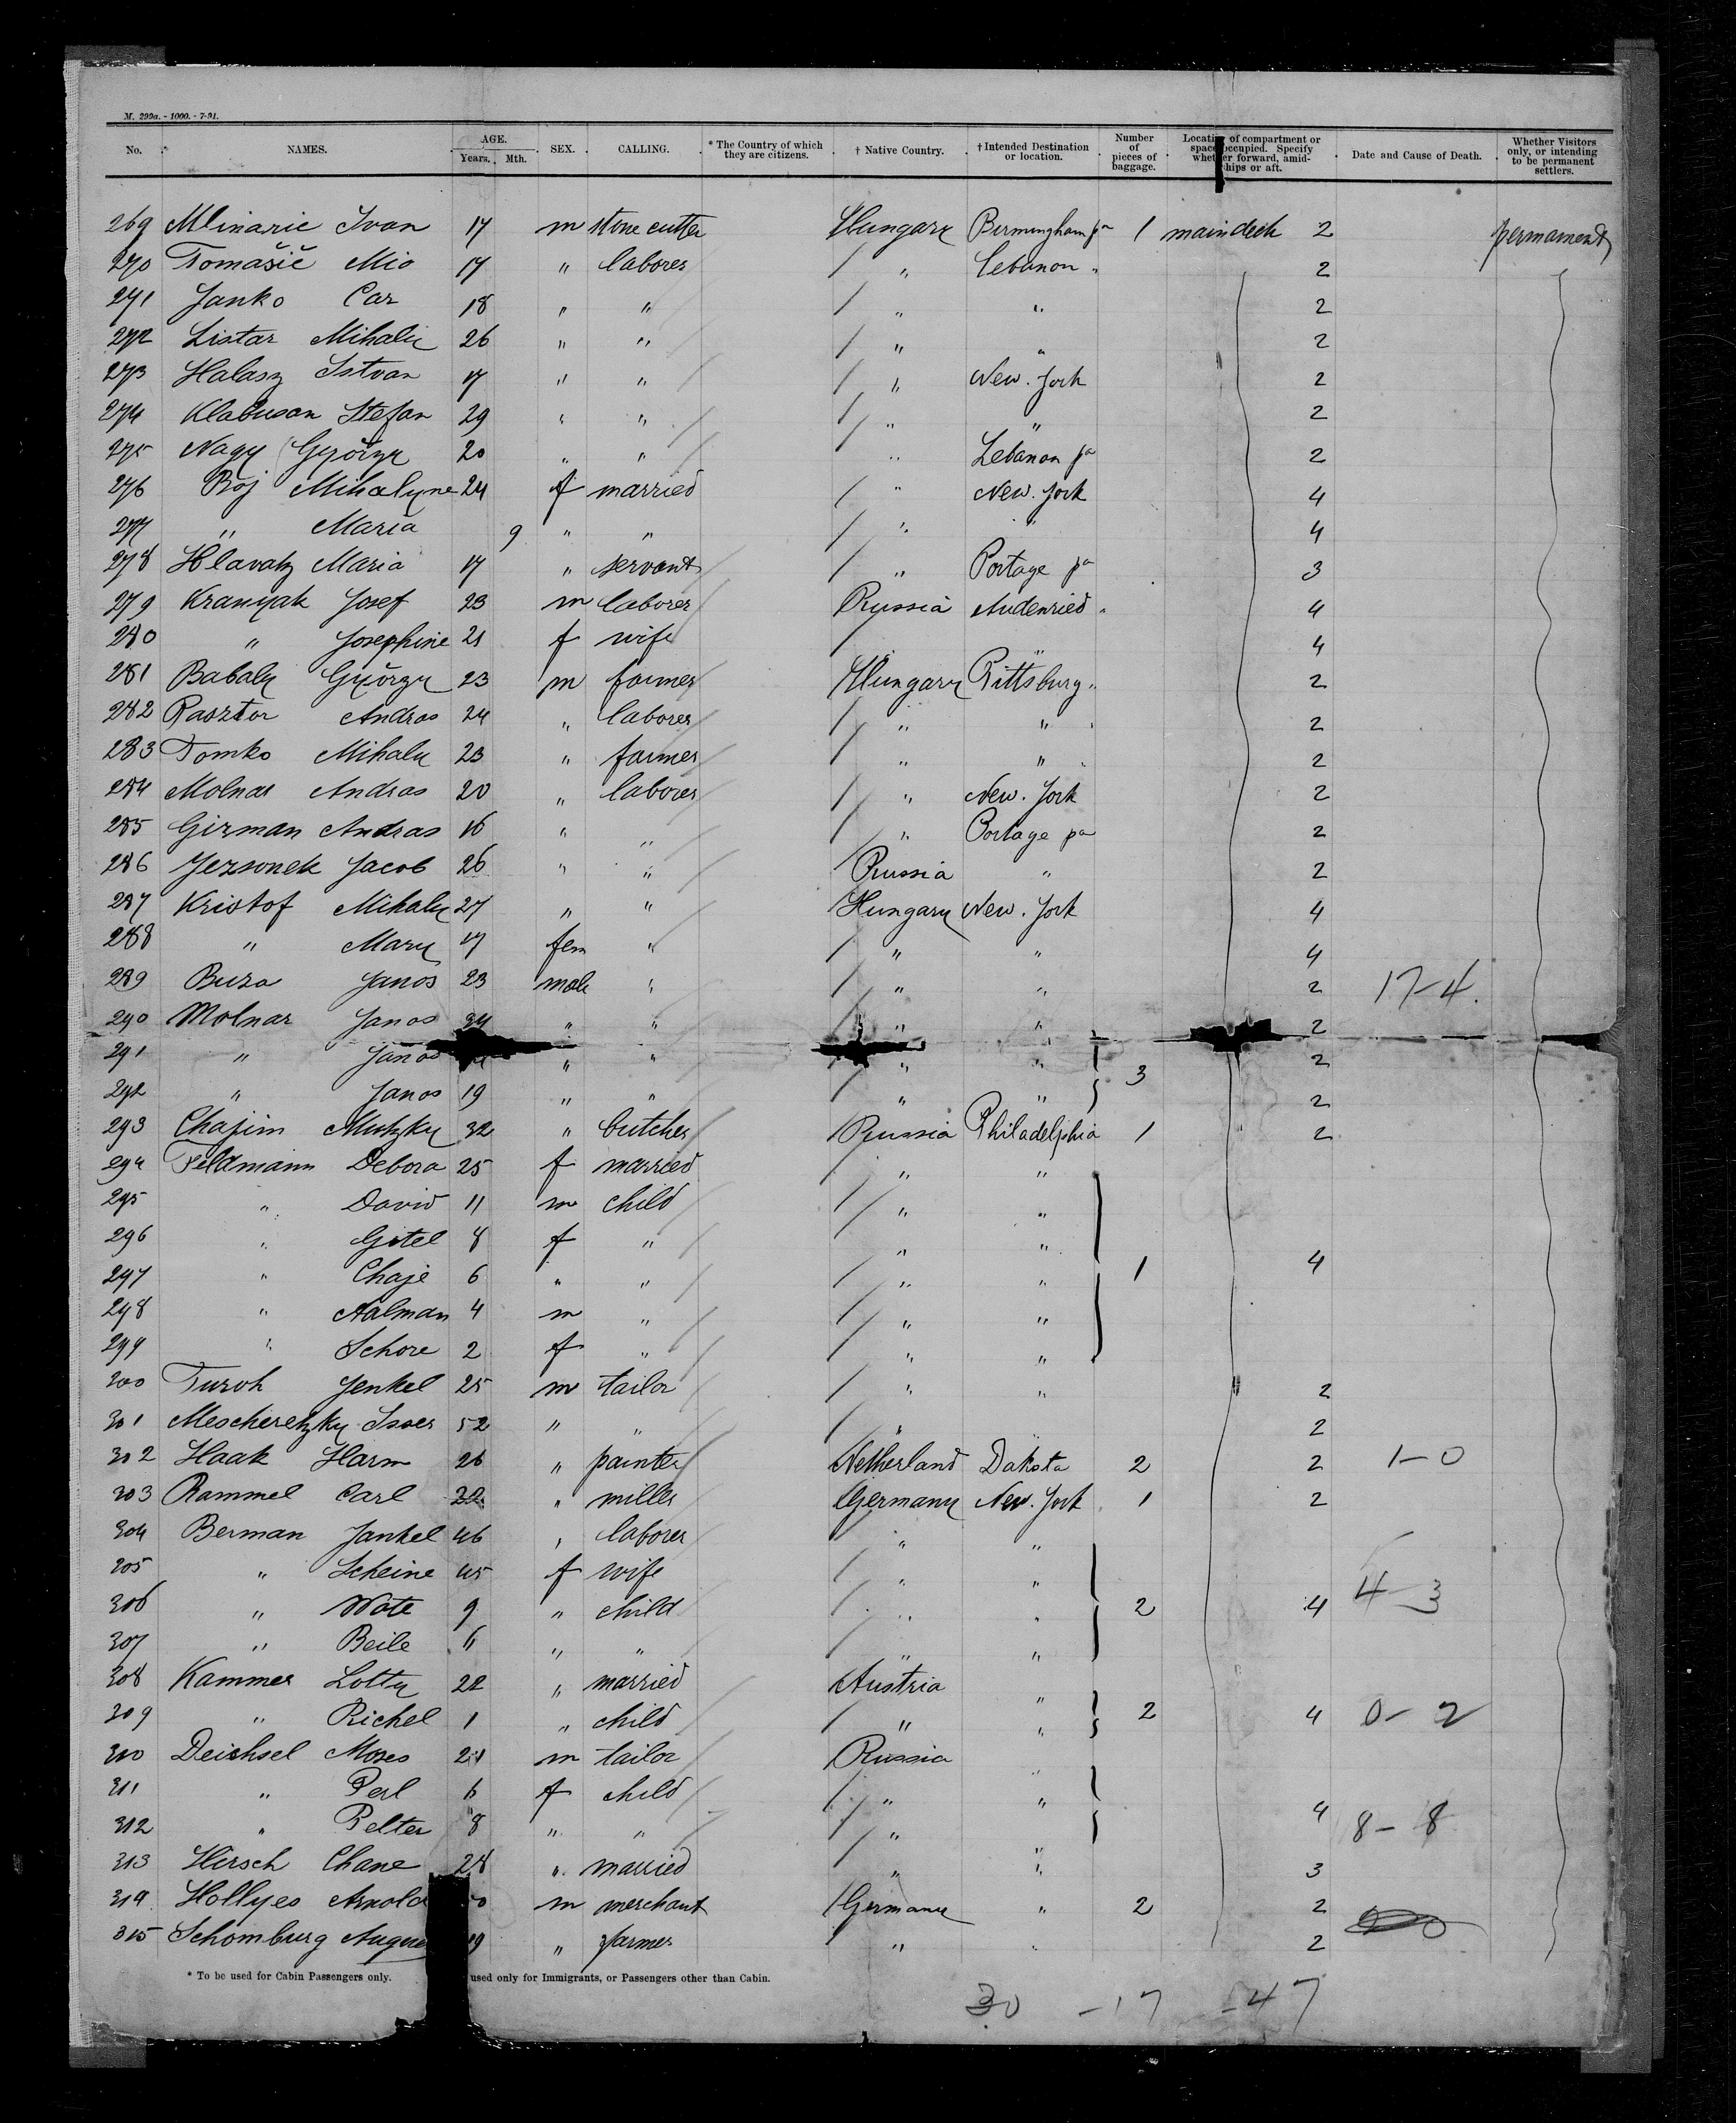 M. 299a. - 1000. - 7-91.
No. NAMES. AGE. Years. Mth. SEX. CALLING. * The Country of which they are citizens. † Native Country. † Intended Destination or location. Number of pieces of baggage. Location of compartment or space occupied. Specify whether forward, amidships or aft. Date and Cause of Death. Whether Visitors only, or intending to be permanent settlers.
269 Mlinaric Ivan 17 m stone cutter Hungary Birmingham pa 1 maindeck 2 permament
270 Tomašič Mio 17 " laborer " Lebanon " 2
271 Janko Car 18 " " " " 2
272 Listar Mihaly 26 " " " " 2
273 Halasz Istvan 17 " " " New. York 2
274 Klabusan Stefan 29 " " " " 2
275 Nagy György 20 " " " Lebanon pa 2
276 Boj Mihalyne 24 f married " New. York 4
277 " Maria 9 " " " " 4
278 Hlavaty Maria 17 " servant " Portage pa 3
279 Kranyak Josef 23 m laborer Russia Audenried " 4
280 " Josephine 21 f wife " " 4
281 Babaly György 23 m farmer Hungary Pittsburg " 2
282 Pasztor Andras 24 " laborer " " " 2
283 Tomko Mihaly 23 " farmer " " " 2
284 Molnar Andras 20 " laborer " New. York 2
285 Girman Andras 16 " " " Portage pa 2
286 Jezsonek Jacob 26 " " Russia " 2
287 Kristof Mihaly 27 " " Hungary New. York 4
288 " Mary 17 fem " " " 4
289 Buza Janos 23 male " " " 2 17-4.
290 Molnar Janos " " " " 2
291 " Janos " " " " 2
292 " Janos 19 " " " " 3 2
293 Chajim 32 " butcher Russia Philadelphia 1 2
294 Feldmann Debora 25 f married " "
295 " David 11 m child " "
296 " Gitel 8 f " " "
297 " Chaje 6 " " " " 1 4
298 " Aalman 4 m " " "
299 " Schore 2 f " " "
300 Turoh Jenkel 25 m tailor " " 2
301 Mescheretzky Isser 52 " " " " 2
302 Haak Harm 26 " painter Netherland Dakota 2 2 1-0
303 Rammel Carl 22 " miller Germany New. York 1 2
304 Berman Jankel 46 " laborer " "
305 " Scheine 45 f wife " "
306 " Note 9 " child " " 2 4 4-3
307 " Beile 6 " " " "
308 Kammer Lotty 22 " married Austria "
309 " Richel 1 " child " " 2 4 0-2
310 Deichsel Moses m tailor Russia "
311 " Perl 6 f child " "
312 " Pelter 8 " " " " 4 8-8
313 Hirsch Chane 28 " married " " 3
314 Hollyes Arnold m merchant Germany " 2 2
315 Schomburg 19 " farmer " " 2
* To be used for Cabin Passengers only. used only for Immigrants, or Passengers other than Cabin.
30 -17 -47